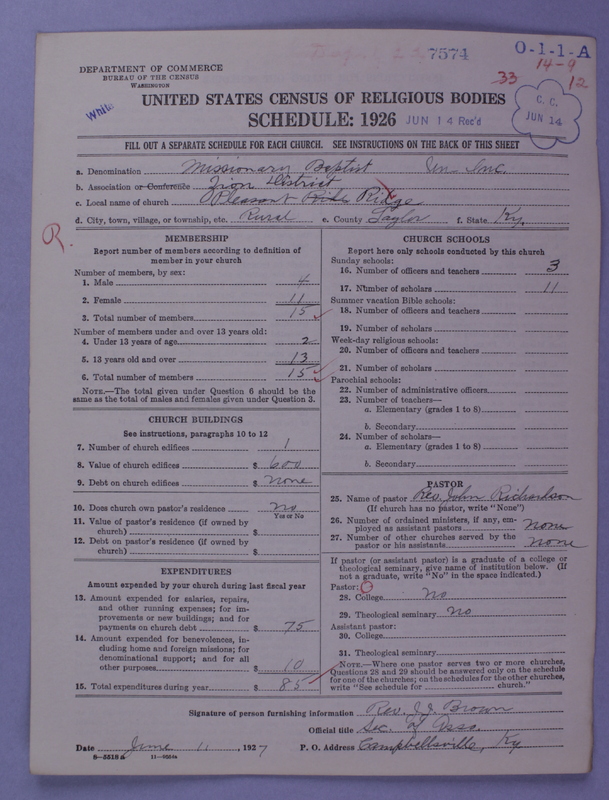 7574
O-1-1-A
14-9
33
12
DEPARTMENT OF COMMERCE
BUREAU OF THE CENSUS
WASHINGTON
White
C. C.
JUN 14
UNITED STATES CENSUS OF RELIGIOUS BODIES
SCHEDULE: 1926 JUN 14 Rec'd
FILL OUT A SEPARATE SCHEDULE FOR EACH CHURCH. SEE INSTRUCTIONS ON THE BACK OF THIS SHEET
a. Denomination Missionary Baptist Un Inc.
b. Association or Conference Zion District
c. Local name of church Pleasant Ride Ridge
d. City, town, village, or township, etc. Rural e. County Taylor f. State Ky.
R.
MEMBERSHIP
Report number of members according to definition of
member in your church
Number of members, by sex:
1. Male 4
2. Female 11
3. Total number of members 15
Number of members under and over 13 years old:
4. Under 13 years of age 2
5. 13 years old and over 13
6. Total number of members 15
NOTE.—The total given under Question 6 should be the
same as the total of males and females given under Question 3.
CHURCH BUILDINGS
See instructions, paragraphs 10 to 12
7. Number of church edifices 1
8. Value of church edifices $ 600
9. Debt on church edifices $ none
10. Does church own pastor's residence? no
Yes or No
11. Value of pastor's residence (if owned by
church) $
12. Debt on pastor's residence (if owned by
church) $
EXPENDITURES
Amount expended by your church during last fiscal year
13. Amount expended for salaries, repairs,
and other running expenses; for im-
provements or new buildings; and for
payments on church debt $ 75
14. Amount expended for benevolences, in-
cluding home and foreign missions; for
denominational support; and for all
other purposes $ 10
15. Total expenditures during year $ 85
CHURCH SCHOOLS
Report here only schools conducted by this church
Sunday schools:
16. Number of officers and teachers 3
17. Number of scholars 11
Summer vacation Bible schools:
18. Number of officers and teachers
19. Number of scholars
Week-day religious schools:
20. Number of officers and teachers
21. Number of scholars
Parochial schools:
22. Number of administrative officers
23. Number of teachers—
a. Elementary (grades 1 to 8)
b. Secondary
24. Number of scholars—
a. Elementary (grades 1 to 8)
b. Secondary
PASTOR
25. Name of pastor Rev. John Richardson
(If church has no pastor, write "None")
26. Number of ordained ministers, if any, em-
ployed as assistant pastors none
27. Number of other churches served by the
pastor or his assistants none
If pastor (or assistant pastor) is a graduate of a college or
theological seminary, give name of institution below. (If
not a graduate, write "No" in the space indicated.)
Pastor: O
28. College no
29. Theological seminary no
Assistant pastor:
30. College
31. Theological seminary
NOTE.—Where one pastor serves two or more churches,
Questions 28 and 29 should be answered only on the schedule
for one of the churches; on the schedules for the other churches,
write "See schedule for church."
Signature of person furnishing information Rev. J. J. Brown
Official title Sec. of Asso.
Date June 11, 1927 P. O. Address Campbellsville, Ky
8-5518a 11-9054a